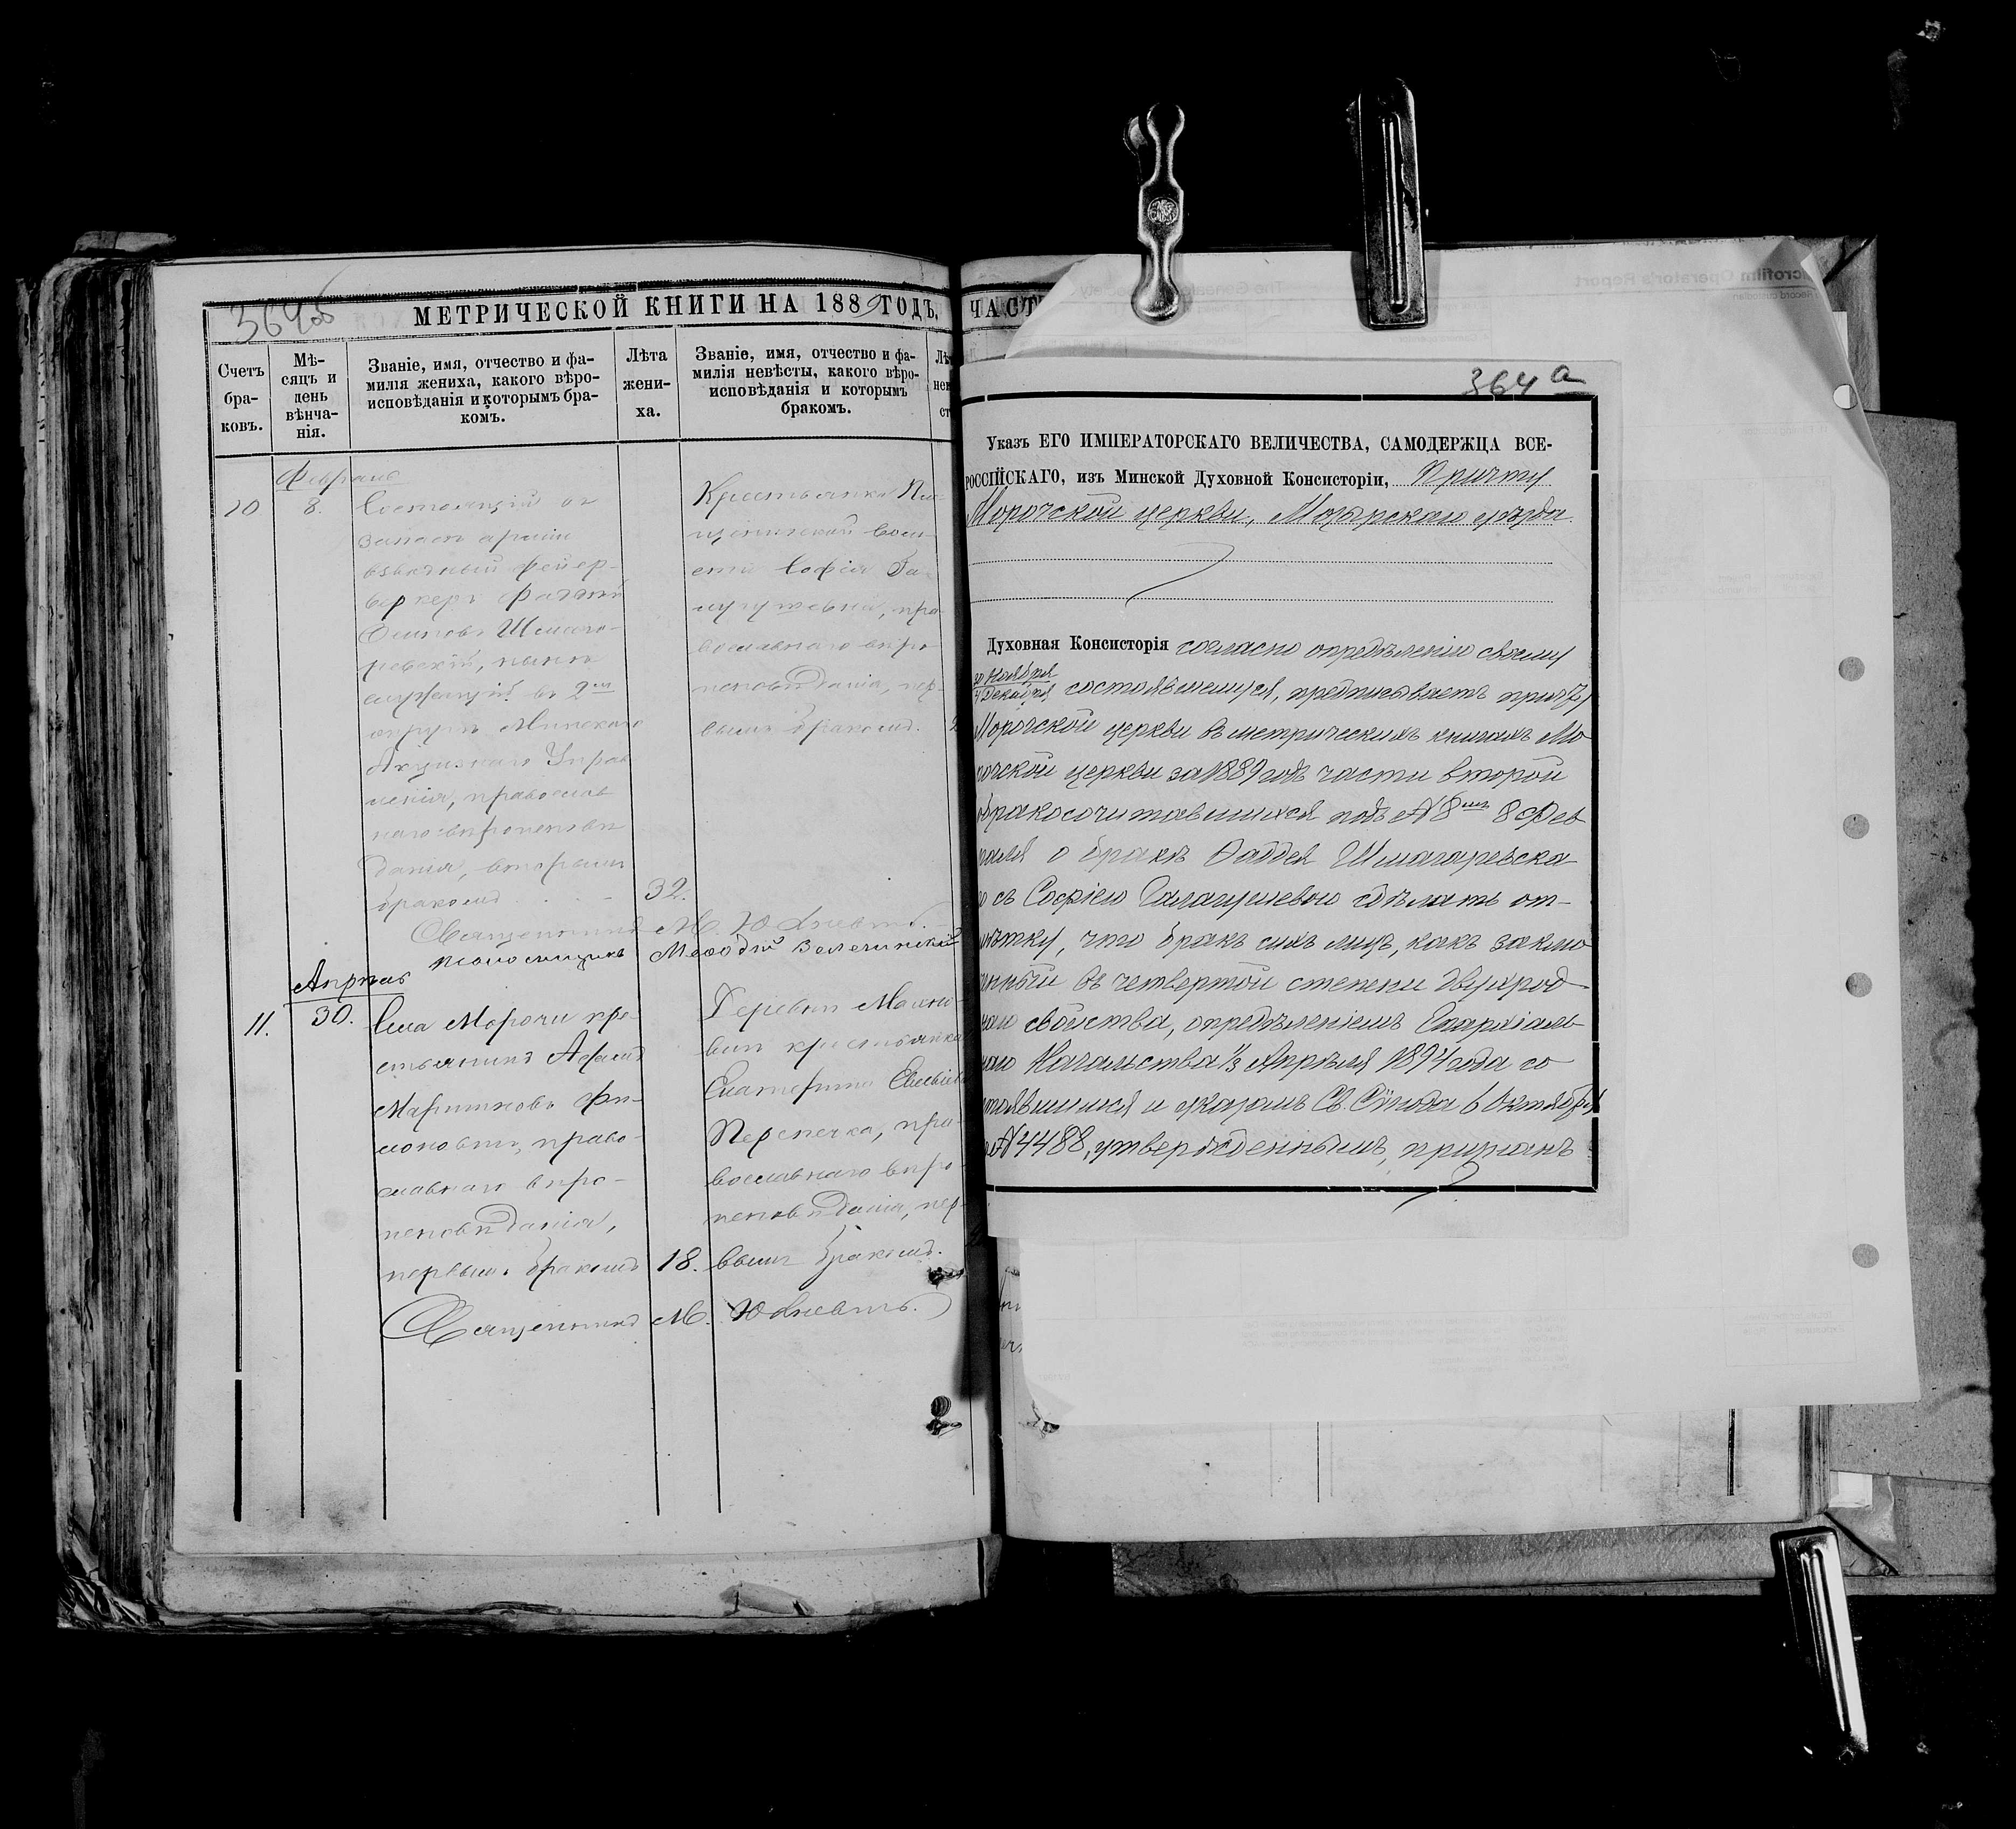 364об
МЕТРИЧЕСКОЙ КНИГИ НА 1889 ГОДЪ,
ЧАСТ
Счетъ бра-ковъ.
Мѣ-сяцъ и день вѣнча-нія.
Званіе, имя, отчество и фа-милія жениха, какого вѣро-исповѣданія и которымъ бра-комъ.
Лѣта жени-ха.
Званіе, имя, отчество и фа-милія невѣсты, какого вѣро-исповѣданія и которымъ бракомъ.
Февраль
10
8.
Состоящій въ
запасѣ арміи
взводный фейер-
веркеръ Фаддей
Осиповъ Шмаго-
ревскій, нынѣ
служащій въ 9мъ
округѣ Минскаго
Акцизнаго Управ
ленія, православ
наго вѣроисповѣ
данія, вторымъ
бракомъ
32.
Крестьянка
щининской воло-
сти Софія Га-
православнаго вѣро
исповѣданія, пер-
вымъ бракомъ.
Священникъ М. Юхневичъ.
Псаломщикъ Меѳодій
Апрѣль
11.
30.
Села Морочи кре-
стьянинъ
Мартиновъ Фи-
моновичъ, право-
славнаго вѣро-
исповѣданія,
первымъ бракомъ
18.
Деревни
вичъ крестьянка
Екатерина
православнаго вѣро
исповѣданія, пер-
вымъ бракомъ.
Священникъ М. Юхневичъ.
364 а
Указъ ЕГО ИМПЕРАТОРСКАГО ВЕЛИЧЕСТВА, САМОДЕРЖЦА ВСЕ-
РОССІЙСКАГО, изъ Минской Духовной Консисторіи, Причту
Морочской церкви, Мозырскаго уѣзда
Духовная Консисторія согласно опредѣленію своему
30 Ноября
4 Декабря состоявшемуся, предписываетъ причту
Морочской церкви въ метрическихъ книгахъ Мо
рочской церкви за 1889 годъ части второй
бракосочитавшихся подъ № 8мъ 8 Фев
раля о бракѣ Фаддея Шмагаревска
го съ Софіею Галагушевою сдѣлать от-
мѣтку, что бракъ сихъ лицъ, какъ заклю
ченный въ четвертой степени двухрод-
наго свойства, опредѣленіемъ Епархіаль
наго Начальства 1/3 Апрѣля 1894 года со
стоявшимся и указомъ Св. Сѵнода 6 Октября
№ 4488, утвержденнымъ, признанъ